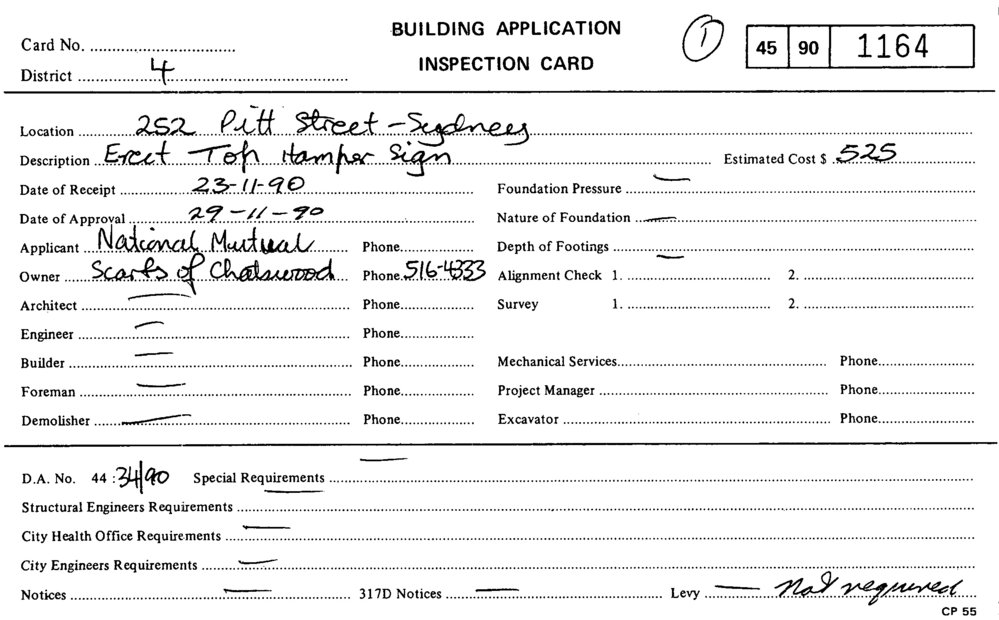 BUILDING APPLICATION
INSPECTION CARD
1
45 90 1164
Card No.
District 4
Location 252 Pitt Street - Sydney
Description Erect Top Hamper Sign Estimated Cost $ 525
Date of Receipt 23-11-90 Foundation Pressure —
Date of Approval 29-11-90 Nature of Foundation —
Applicant National Mutual Phone Depth of Footings —
Owner Scarfs of Chatswood Phone 516-4333 Alignment Check 1. 2.
Architect — Phone Survey 1. 2.
Engineer — Phone
Builder — Phone Mechanical Services Phone
Foreman — Phone Project Manager Phone
Demolisher — Phone Excavator Phone
D.A. No. 44 : 34/90 Special Requirements —
Structural Engineers Requirements —
City Health Office Requirements —
City Engineers Requirements —
Notices — 317D Notices — Levy — Not required
CP 55